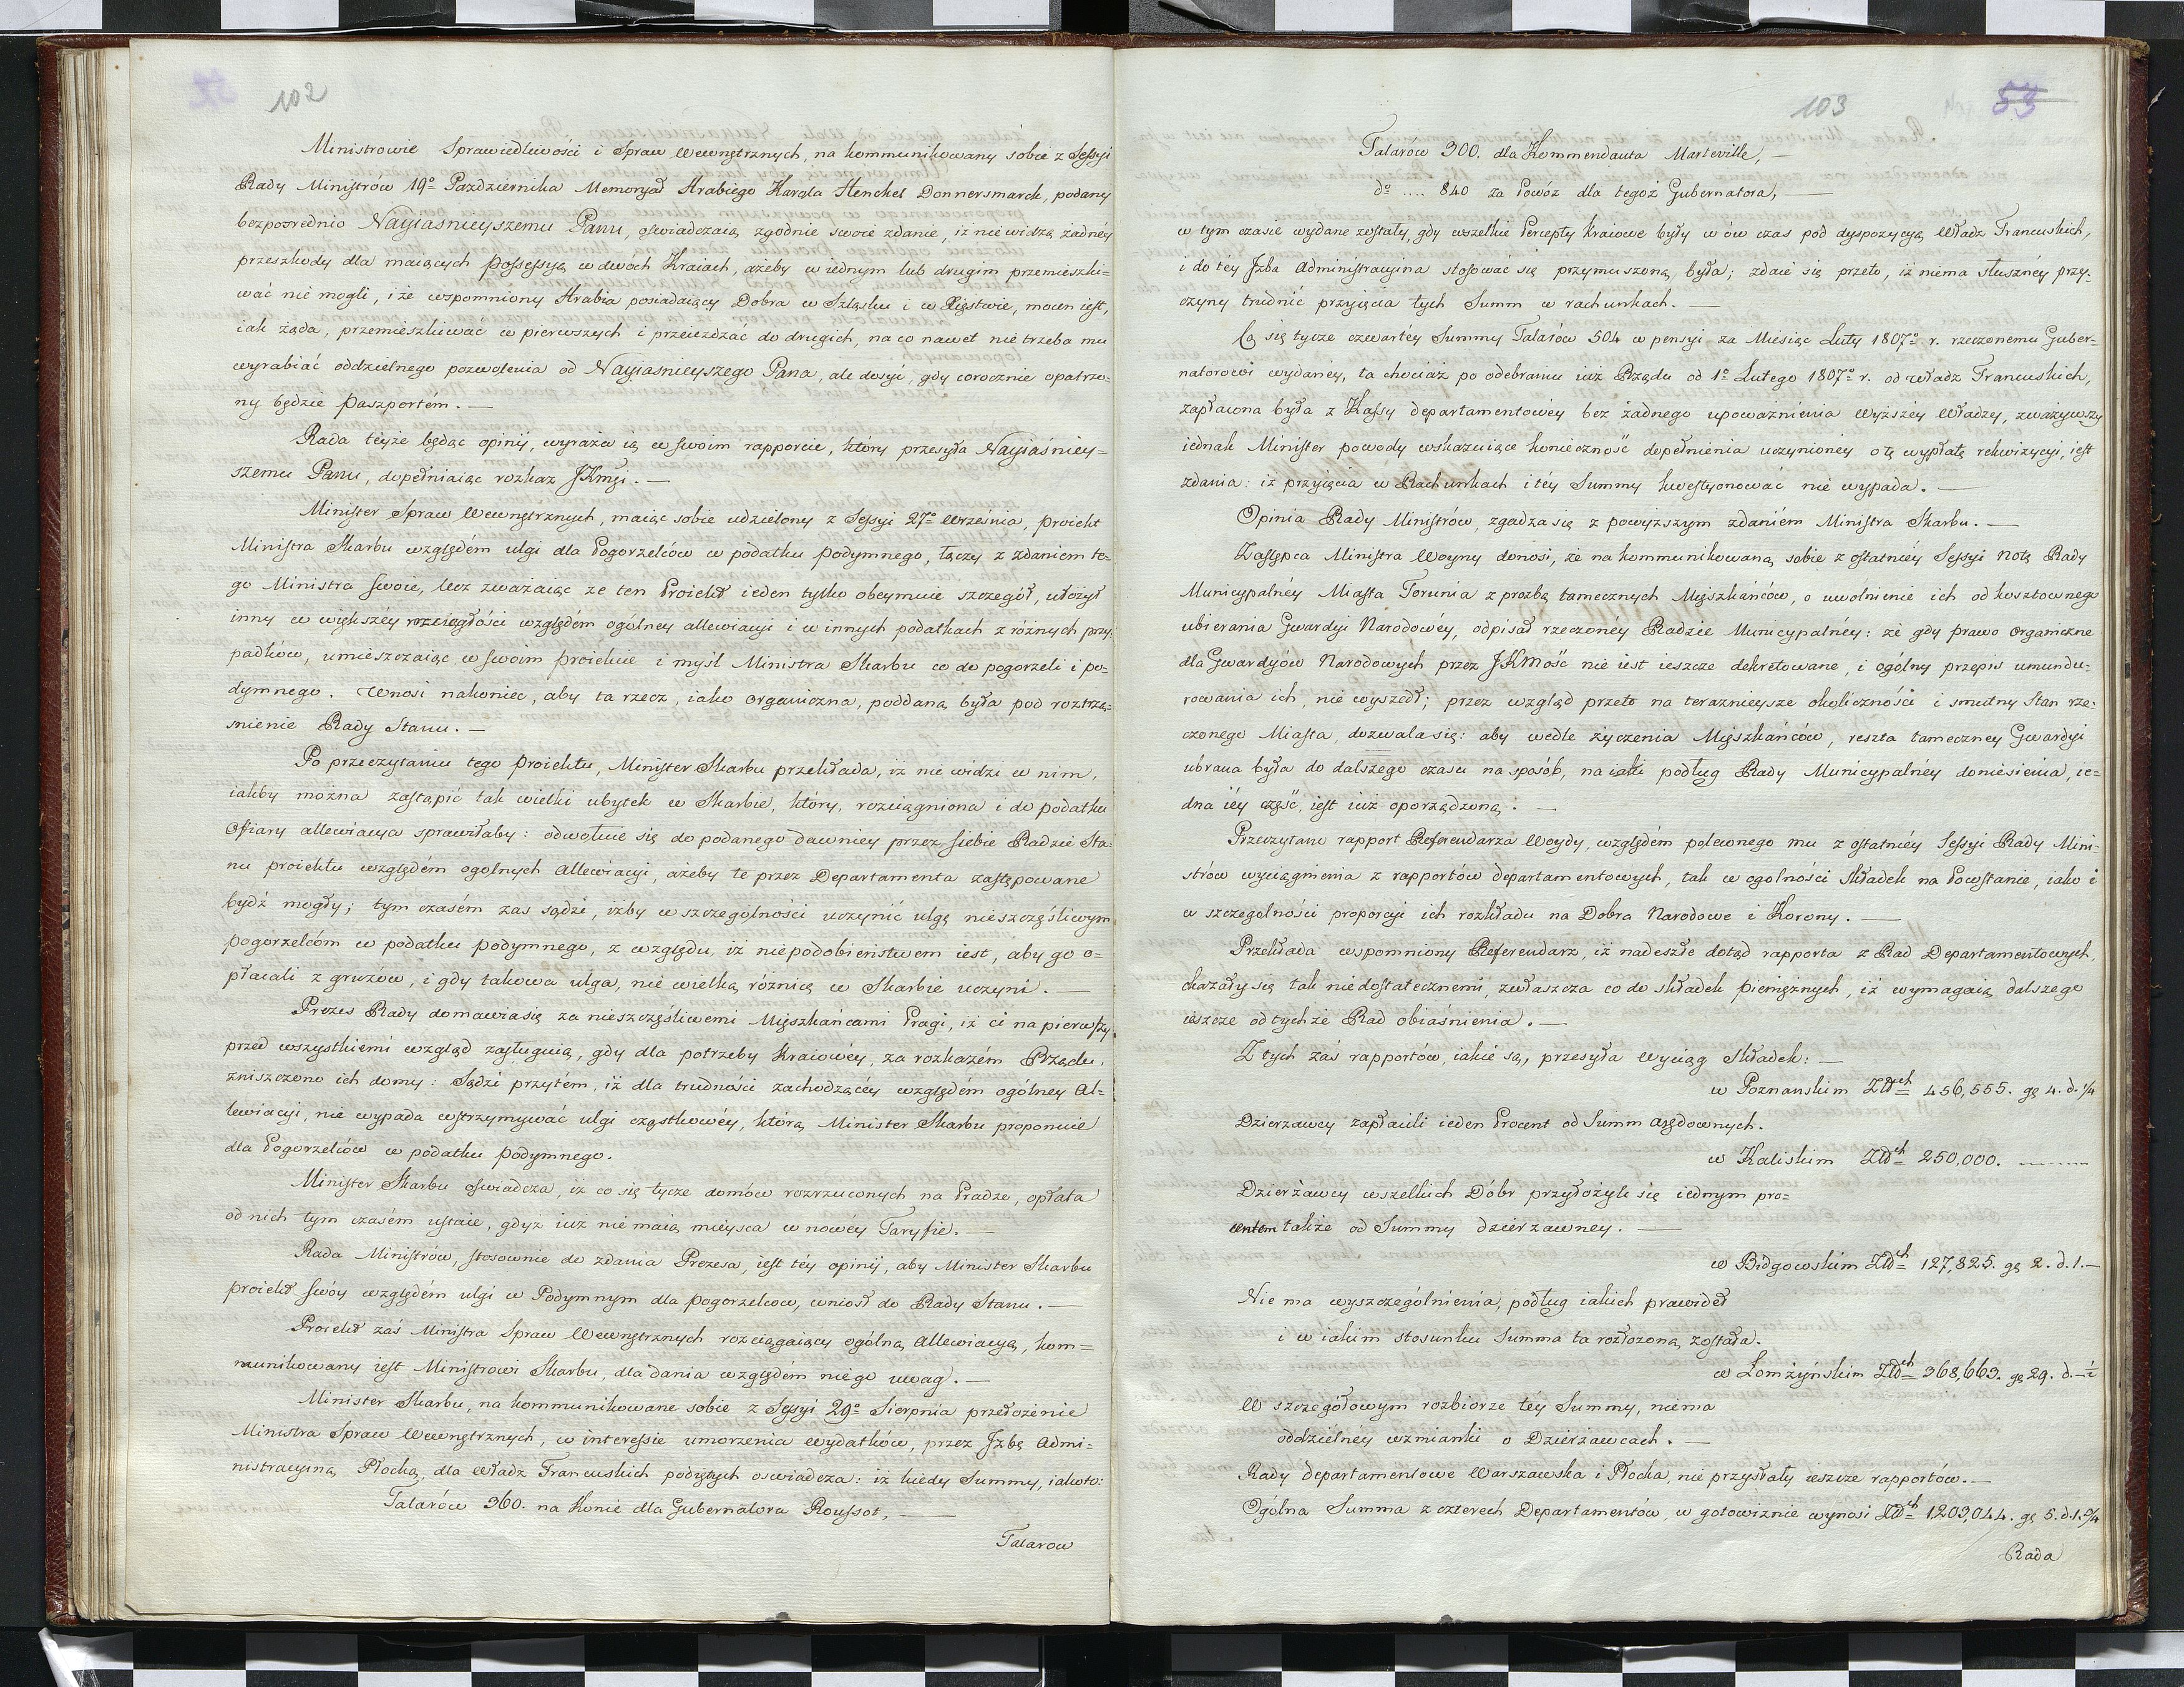 102
Ministrowie Sprawiedliwości i Spraw Wewnętrznych, na kommunikowany sobie z Sessyi
Rady Ministrów 19º Pazdziernika Memoryał Hrabiego Karola Henckel Donnersmarck, podany
bezpośrednio Nayiasnieyszemu Panu, oświadczaią zgodnie swoie zdanie, iż nie widzą żadnéy
przeszkody dla maiących possessyą w dwóch Kraiach, ażeby w iednym lub drugim przemieszki=
wać nie mogli, i że wspomniony Hrabia posiadaiący Dobra w Szląsku i w Xięstwie, mocen iest,
iak żąda, przemieszkiwać w pierwszych i przeieżdzać do drugich, na co nawet nie trzeba mu
wyrabiać oddzielnego pozwolenia od Nayiasnieyszego Pana, ale dosyć, gdy corocznie opatrzo=
ny będzie paszportém. —
Rada téyże będąc opinii, wyraża ią w swoim rapporcie, który przesyła Nayiaśniey=
szemu Panu, dopełniaiąc rozkaz JKMci. —
Minister Spraw Wewnętrznych, maiąc sobie udzielony z Sessyi 27º Września, proiekt
Ministra Skarbu względém ulgi dla Pogorzelców w podatku podymnego, łączy z zdaniem te=
go Ministra swoie, lecz zważaiąc że ten Proiekt ieden tylko obeymuie szczegół, ułożył
inny w większéy rozciągłości względém ogólney allewiacyi i w innych podatkach z różnych przy
padków, umieszczaiąc w swoim proiekcie i myśl Ministra Skarbu co do pogorzeli i po=
dymnego. Wnosi nakoniec, aby ta rzecz, iako organiczna, poddaną była pod roztrzą=
śnienie Rady Stanu. —
Po przeczytaniu tego proiektu, Minister Skarbu przekłada, iż nie widzi w nim,
iakby można zastąpić tak wielki ubytek w Skarbie, który, rozciągniona i do podatku
Ofiary allewiacya sprawiłaby: odwołuie się do podanego dawniey przez siebie Radzie Sta=
nu proiektu względém ogolnych allewiacyi, ażeby te przez Departamenta zastępowane
bydź mogły; tym czasém zas sądzi, iżby w szczególności uczynić ulgę nieszczęśliwym
pogorzelcóm w podatku podymnego, z względu, iż niepodobieństwem iest, aby go o=
płacali z gruzów, i gdy takowa ulga, nie wielką różnicę w Skarbie uczyni. —
Prezes Rady domawia się za nieszczęśliwemi Mięszkańcami Pragi, iż ci na pierwszy
przed wszystkiemi wzgląd zasługuią, gdy dla potrzeby kraiowéy, za rozkazém Rządu,
zniszczono ich domy: Sądzi przytém, iż dla trudności zachodzącéy względém ogólney al=
lewiacyi, nie wypada wstrzymywać ulgi cząstkowéy, którą Minister Skarbu proponuie
dla Pogorzelców w podatku podymnego.
Minister Skarbu oświadcza, iż co się tycze domów rozrzuconych na Pradze, opłata
od nich tym czasém ustaie, gdyż iuż nie maią mieysca w nowéy Taryfie. —
Rada Ministrów, stosownie do zdania Prezesa, iest téy opinii, aby Minister Skarbu
proiekt swóy względém ulgi w Podymnym dla pogorzelcow, wniosł do Rady Stanu. —
Proiekt zaś Ministra Spraw Wewnętrznych rozciągaiący ogólną allewiacyą, kom=
munikowany iest Ministrowi Skarbu, dla dania względém niego uwag. —
Minister Skarbu, na kommunikowane sobie z Sessyi 29º Sierpnia przełożenie
Ministra Spraw Wewnętrznych, w interessie umorzenia wydatków, przez Jzbę Admi=
nistracyiną Płocką, dla Władz Francuskich podiętych oswiadcza: iż kiedy Summy, iakoto:
Talarów 360. na Konie dla Gubernatora Roussot, —
Talarow
103
53
Talarów 300. dla Kommendanta Marteville, —
dº .... 840 za Powóz dla tegoż Gubernatora, —
w tym czasie wydane zostały, gdy wszelkie Percepty kraiowe były w ów czas pod dyspozycyą Władz Francuskich,
i do téy Jzba Administracyina stosować się przymuszoną była; zdaie się przeto, iż niema słusznéy przy=
czyny trudnić przyięcia tych Summ w rachunkach. —
Co się tycze czwartéy Summy Talarów 504 w pensyi za Miesiąc Luty 1807º r. rzeczonemu Guber=
natorowi wydanéy, ta chociaż po odebraniu iuż Rządu od 1º Lutego 1807º r. od Władz Francuskich,
zapłacona była z Kassy departamentowéy bez żadnego upoważnienia wyższéy Władzy, zważywszy
iednak Minister powody wskazuiące konieczność dopełnienia uczynionéy o tę wypłatę rekwizycyi, iest
zdania: iż przyięcia w Rachunkach i téy Summy kwestyonować nie wypada. —
Opinia Rady Ministrów, zgadza się z powyższym zdaniém Ministra Skarbu. —
Zastępca Ministra Woyny donosi, że na kommunikowaną sobie z ostatniéy Sessyi notę Rady
Municypalnéy Miasta Torunia z prozbą tamecznych Mięszkańców, o uwolnienie ich od kosztownego
ubierania Gwardyi Narodowéy, odpisał rzeczonéy Radzie Municypalnéy: że gdy prawo organiczne
dla Gwardyów Narodowych przez JKMość nie iest ieszcze dekretowane, i ogólny przepis umundu=
rowania ich, nie wyszedł; przez wzgląd przeto na terazniejsze okoliczności i smutny Stan rze=
czonego Miasta, dozwala się: aby wedle życzenia Mięszkańców, reszta tameczney Gwardyi
ubrana była do dalszego czasu na sposób, na iaki podług Rady Municypalnéy doniesienia, ie=
dna iéy część, iest iuż oporządzoną. —
Przeczytano rapport Referendarza Woydy, względém poleconego mu z ostatniéy Sessyi Rady Mini=
strów wyciągnienia z rapportów departamentowych, tak w ogolności Składek na Powstanie, iako i
w szczególności proporcyi ich rozkładu na Dobra Narodowe i Korony. —
Przekłada wspomniony Referendarz, iż nadeszłe dotąd rapporta z Rad Departamentowych,
okazały się tak niedostatecznemi, zwłaszcza co do składek pieniężnych, iż wymagaią dalszego
ieszcze od tychże Rad obiaśnienia. —
Z tych zaś rapportów, iakie są, przesyła Wyciąg Składek: —
w Poznanskim Złłch 456,555. gę 4. d. 1/4
Dzierzawcy zapłacili ieden Procent od Summ arędownych.
w Kaliskim Złłch 250,000. —
Dzierżawcy wszelkich Dóbr przyłożyli się iednym pro=
centem także od Summy dzierżawney. —
w Bidgowskim Złłch 127,825. gę 2. d. 1. —
Nie ma wyszczególnienia, podług iakich prawideł
i w iakim stosunku Summa ta rozłożoną została.
w Łomżyńskim Złłch 368,663. gę 29. d. — 1/2
W szczegółowym rozbiorze téy Summy, niema
oddzielnéy wzmianki o Dzierżawcach. —
Rady departamentowe Warszawska i Płocka, nie przysłały ieszcze rapportów. —
Ogólna Summa z czterech Departamentów, w gotowiznie wynosi Złłch 1,203,044. gę 5. d. 1. 3/4
Rada